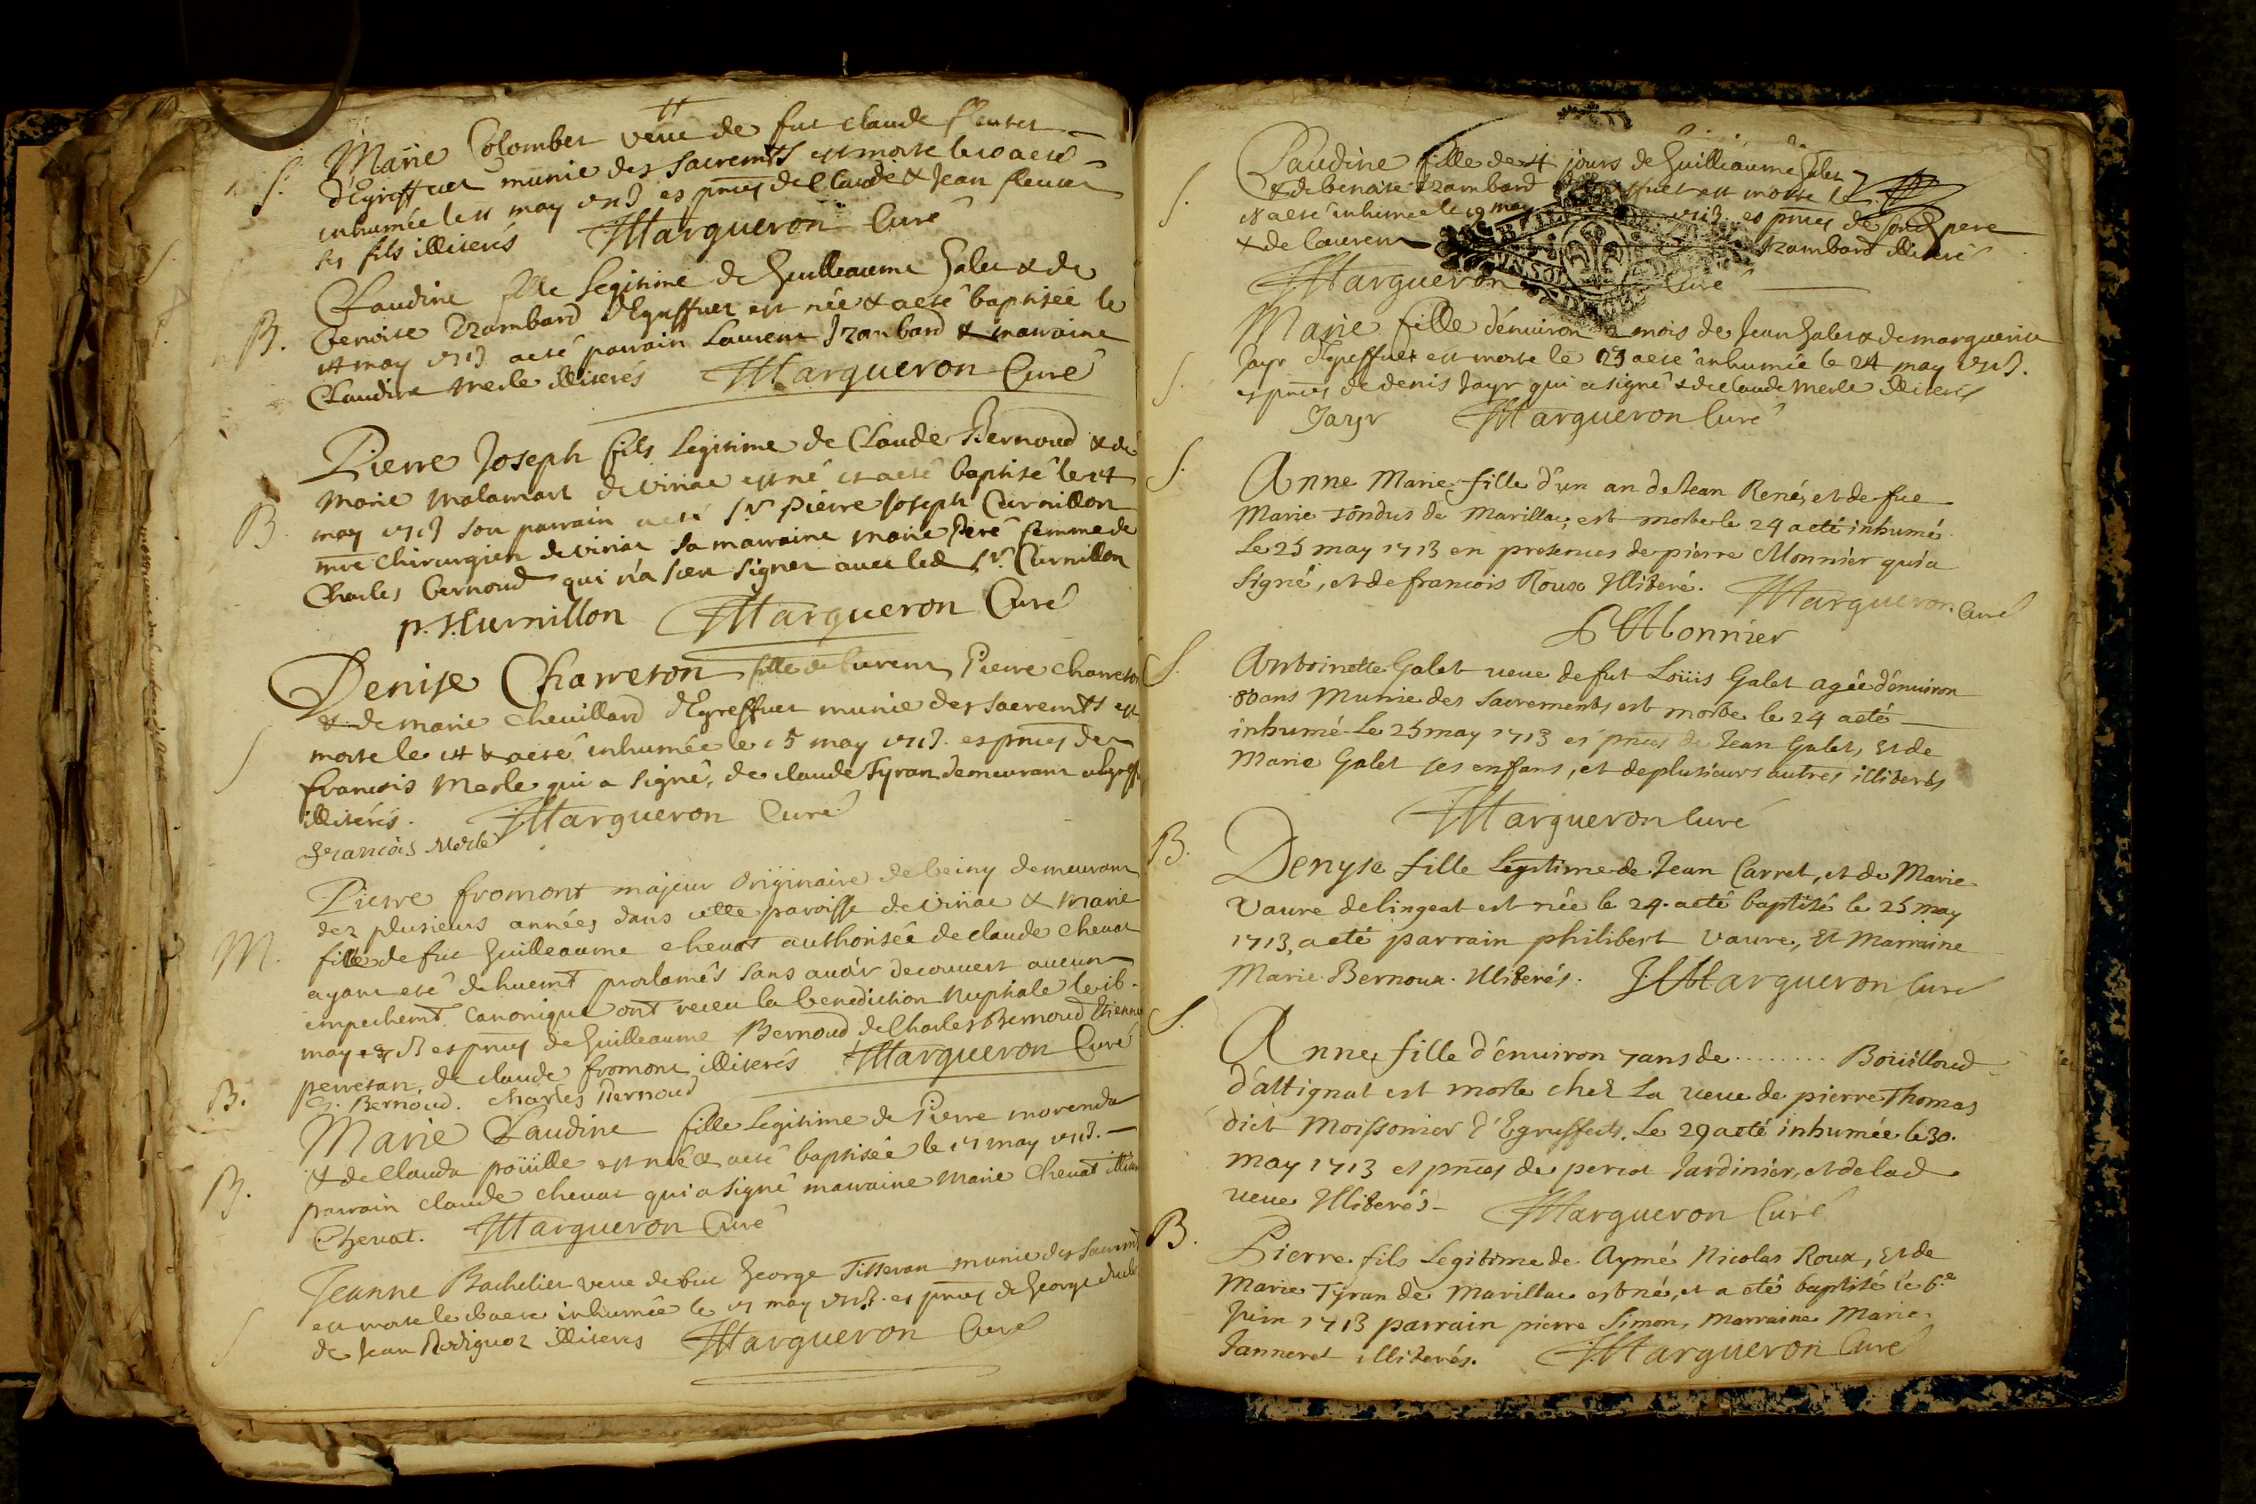 S. Marie Colomber veue de fut claude fleuret
d'Egreffuet munie des sacremts est morte le 10 a eté
inhumée le 11 may 1713 es pnces de Claude & Jean fleuret
ses fils illiterés JMargueron Curé
B. Claudine fille legitime de Guilleaume Galet & de
Benoite Izambard d'Egreffuet est née & a eté baptisée le
14 may 1713 a eté parrain Laurent Izambard & marraine
Claudine Merle illiterés JMargueron Curé
B Pierre Joseph fils legitime de Claude Bernoud & de
Marie Malamart de viriat est né et a eté baptisé le 14
may 1713 son parrain a eté Sr Pierre Joseph Curnillon
mre chirurgien de viriat sa marraine Marie Peré femme de
Charles Bernoud qui n'a sceu signer avec led Sr. Curnillon
P. J. Curnillon JMargueron Curé
Denise Charreton fille de Pierre Charreton
S & de Marie Chevillard d'Egreffuet munie des sacremts est
morte le 14 & a eté inhumée le 15 may 1713. es pnces de
francois Merle qui a signé, de claude Tyran demeurant
illiterés. JMargueron Curé
francois Merle
Pierre fromont majeur originaire de beiny demeurant
dez plusieurs années dans cette paroisse de viriat & Marie
M. fille de fut Guilleaume chevat authorisée de claude chevat
ayant eté dehuemt proclamés sans avoir decouvert aucun
empechemt. Canonique ont receu la benediction Nuptiale le 16.
may 1713 es pnces de Guilleaume Bernoud, de Charles Bernoud
perretan, de claude fromont illiterés JMargueron Curé
B. G. Bernoud. Charles Bernoud
B. Marie Claudine fille legitime de Pierre
& de Clauda poüille est née & a eté baptisée le 17 may 1713.
parrain claude chevat qui a signé marraine Marie Chevat
Chevat. JMargueron Curé
Jeanne Bachelier veue de fut George Tisseran munie des
S est morte le 16 a eté inhumée le 17 may 1713. es pnces de George
de Jean Rodignot illiterés JMargueron Curé
Claudine fille de 4 jours de Guilleaume Galet
S. & de benoite Izambard est morte le
et a eté inhumée le 19 may 1713. es pnces de sond pere
& de Laurent Izambard illiteré
JMargueron Curé
Marie fille d'environ 2 mois de Jean Galet & de marguerite
S Jayr d'Egreffuet est morte le 23 a eté inhumée le 24 may 1713.
es pnces de denis Jayr qui a signé & de claude Merle illiterés
Jayr JMargueron Curé
S. Anne Marie fille d'un an de Jean René, et de fue
Marie Tondus de Marillac, est morte le 24 a eté inhumé
Le 25 may 1713 en presences de pierre Monnier qui a
Signé, et de francois Roux Illiteré. JMargueron Curé
P Monnier
S. Antoinette Galet veue de fut Loüis Galet agée d'environ
80 ans Munie des Sacrements est morte le 24 a eté
inhumé Le 25 may 1713 es pnces de Jean Galet, Et de
Marie Galet ses enfans, et de plusieurs autres illiterés
JMargueron Curé
B. Denyse fille Legitime de Jean Carret, et de Marie
Vaure de lingeat est née le 24. a eté baptisé le 25 may
1713, a eté parrain philibert Vaure, Et Marraine
Marie Bernoux. Illiterés. JMargueron Curé
S. Anne fille d'environ 7 ans de ......... Boüilloud
d'attignat est morte chez La veue de pierre Thomas
dict Moissonier d'Egreffets. Le 29 a eté inhumée le 30.
may 1713 es pnces de perrot Jardinier, et de lad
veue Illiterés JMargueron Curé
B. Pierre fils Legitime de Aymé Nicolas Roux, Et de
Marie Tyran de Marillac est né, et a eté baptisé le 6e
Juin 1713 parrain pierre Simon, Marraine Marie
Janneret illiterés. JMargueron Curé